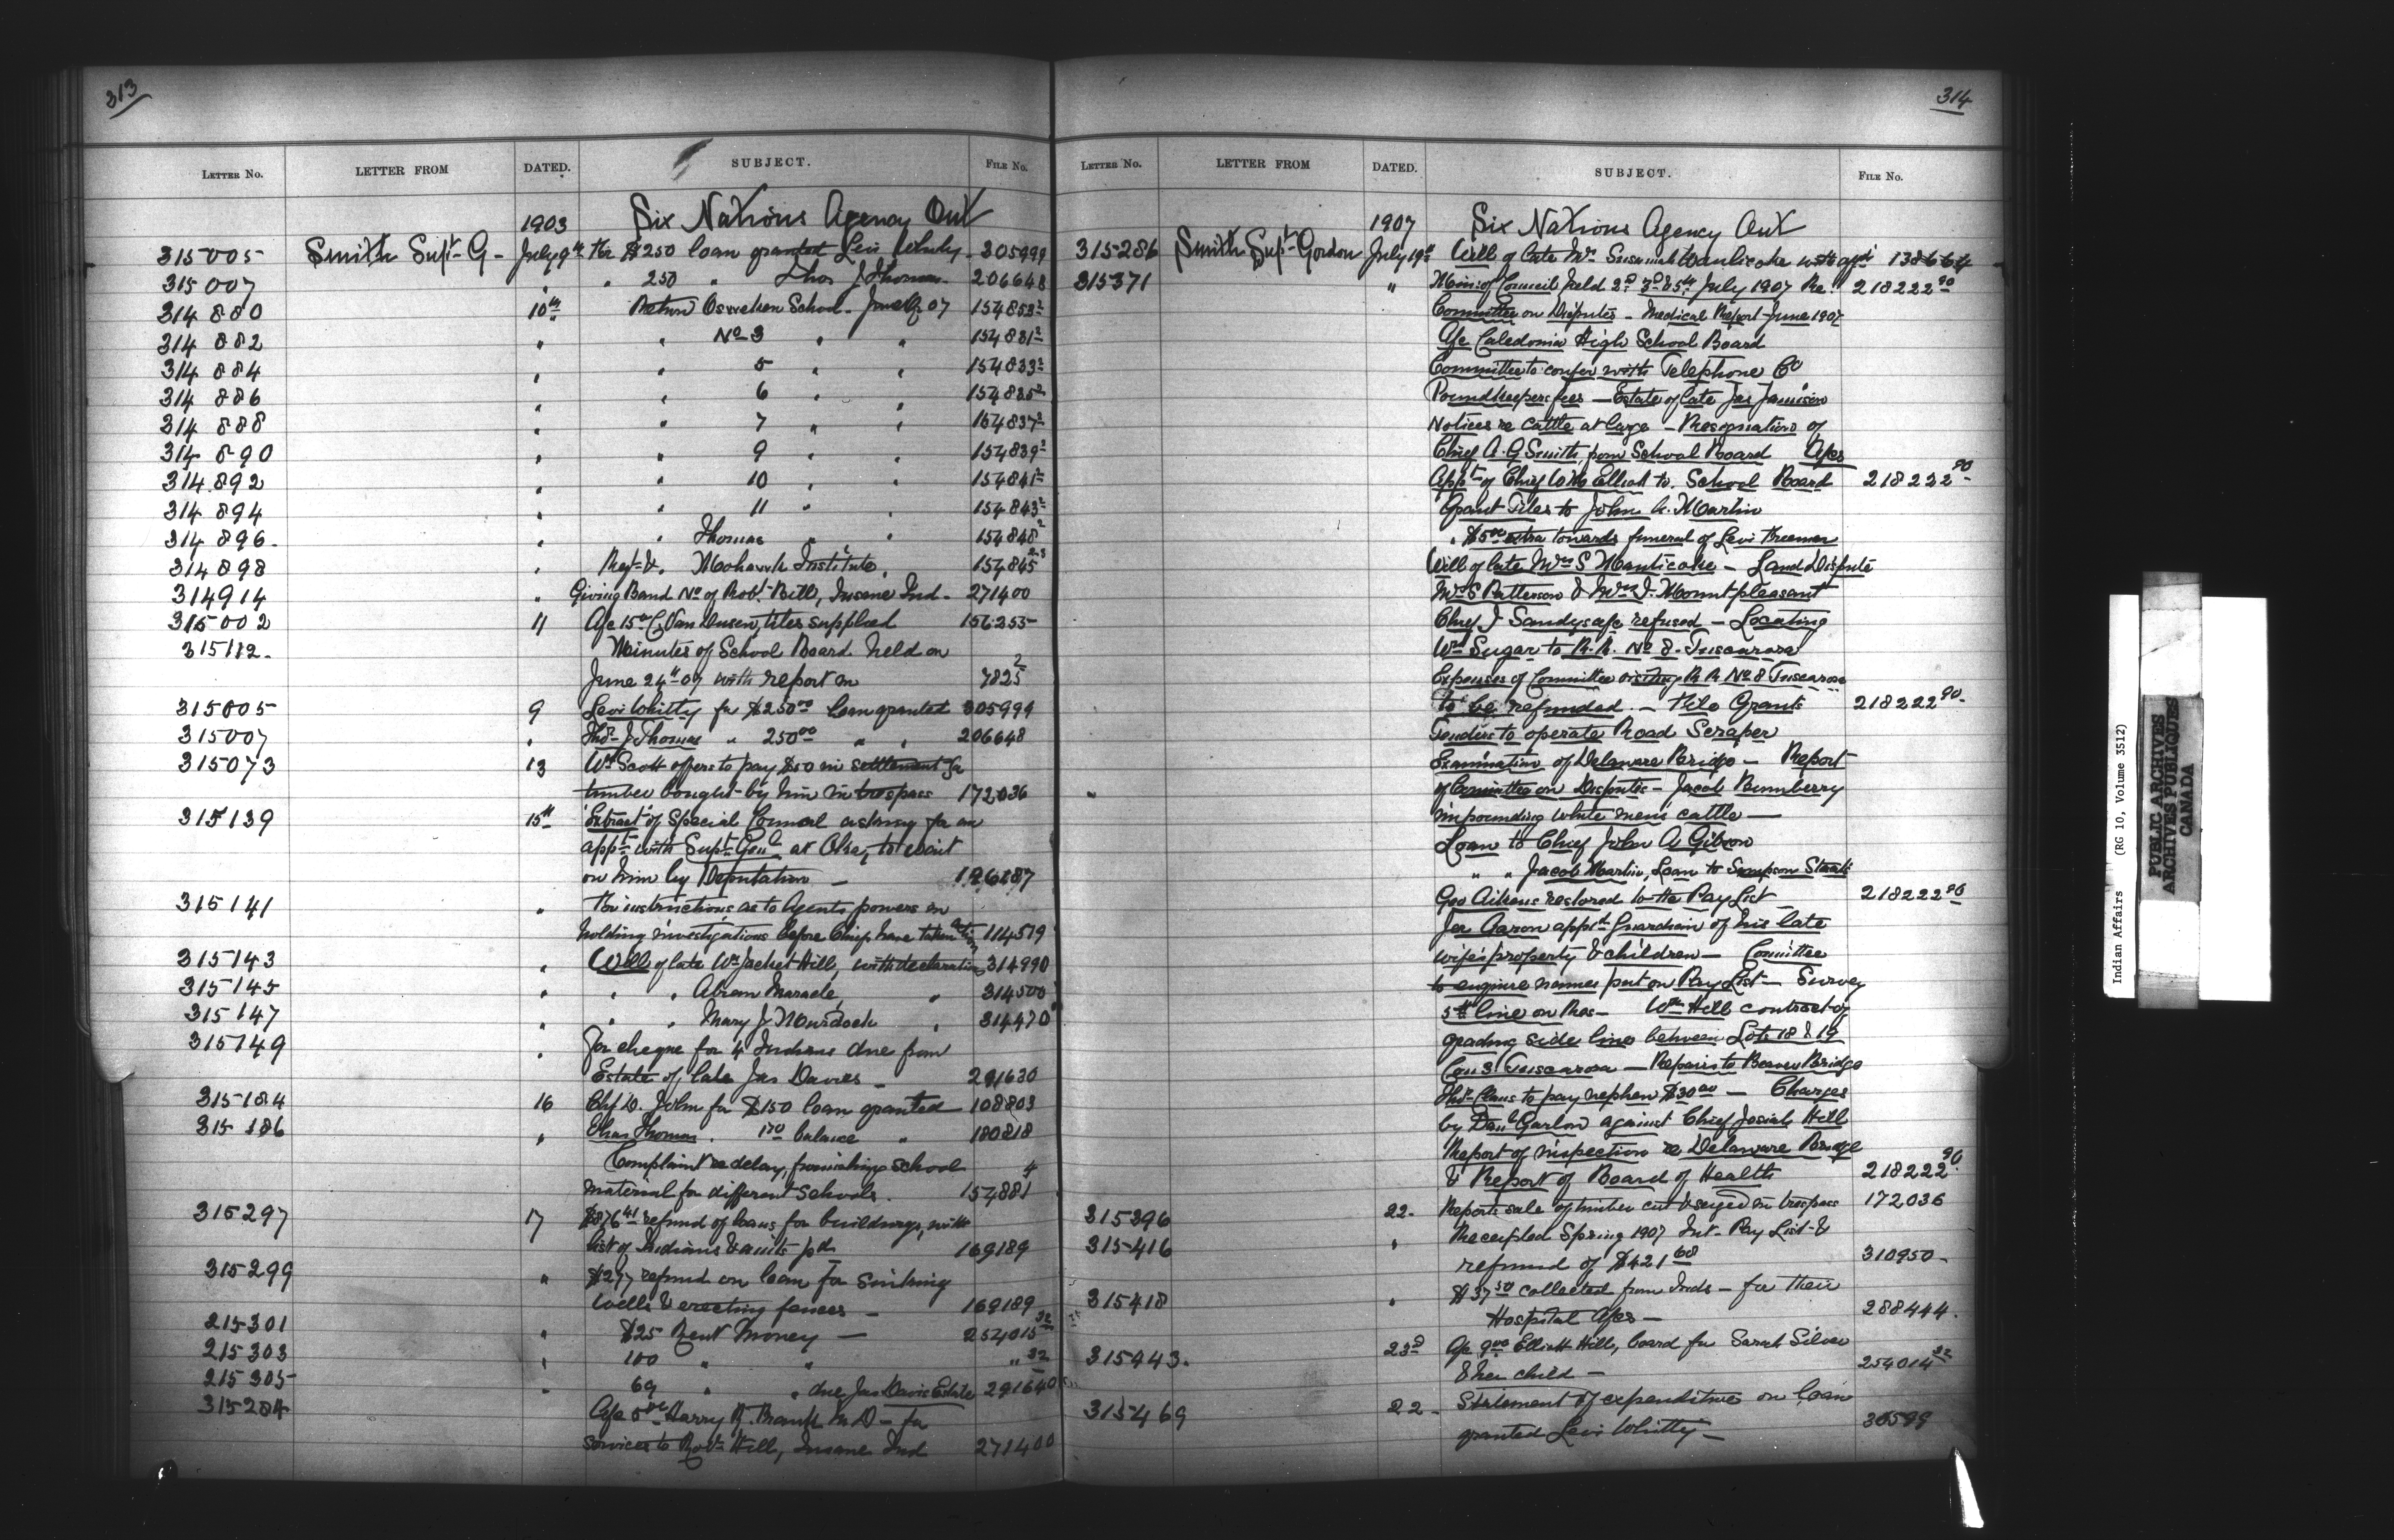 313
LETTER NO. LETTER FROM DATED. SUBJECT. FILE NO.
1903 Six Nations Agency Ont
315005 Smith Supt G - July 9th Re $250 loan granted Levi Whitty 305999
315007 " " 250 " Thos J Thomas 206648
314880 10th Return Osweken School - June Qr 07 154853²
314882 " " No 3 " " 154831²
314884 " " 5 " " 154833²
314886 " " 6 " " 154835²
314888 " " 7 " " 154837²
314890 " " 9 " " 154839²
314892 " " 10 " " 154841²
314894 " " 11 " " 154843²
314896 " " Thomas " " 154848²
314898 " Rept & Mohawk Institute 154845
314914 " Giving Band No of Robt Bill, Insane Ind - 271400
315002 11 a/c 15.00 C. Van Dusen, tiles supplied 156255
315112 Minutes of School Board held on
June 24th 07 with report on 7825²
315005 9 Levi Whitty for $250.00 loan granted 305999
315007 " Thos J Thomas " 250.00 " " 206648
315073 13 Wm Scott offers to pay $50 in settlement for
timber bought by him in trespass 172036
315139 15th Extract of Special Council asking for an
appt with Supt Genl at Otta, to wait
on him by Deputation - 126287
315141 " For instructions as to Agents powers in
holding investigations before Chiefs have taken action 114579
315143 " Will of late Wm Jacket Hill, with declaration 314990
315145 " " " Abram Maracle, " 314500
315147 " " " Mary J Murdock " 314470
315149 " For cheque for 4 Indians due from
Estate of late Jas Davies - 291630
315184 16 Chf D. John for $150 loan granted 108803
315186 " Chas Thomas . 170 balance " 180818
Complaint re delay, furnishing school
material for different schools. 154881⁴
315297 17 $876.41 refund of loans for buildings, with
list of Indians & amts pd 169189
315299 " $277 refund on loan for sinking
wells & erecting fences - 169189
215301 " $25 Rent Money - 254015³²
215303 " 100 " " " ³²
215305 " 69 " " due Jas Davis Estate 291640
315284 a/c 5.00 Harry R. Frank M.D - for
services to Robt Hill, Insane Ind 271400
314
LETTER NO. LETTER FROM DATED. SUBJECT. FILE NO.
1907 Six Nations Agency Ont
315286 Smith Supt Gordon July 19th Will of late Mrs Susannah Nanticoke with appt 138664
315371 " Min: of Council held 2nd 3rd & 5th July 1907 Re. 218222⁹⁰
Committee on Disputes - Medical Report - June 1907
a/c Caledonia High School Board
Committee to confer with Telephone Co
Poundkeepers fees - Estate of late Jas Jamieson
Notices re cattle at large - Resignation of
Chief A. G Smith, from School Board a/cs
Appt of Chief Wm Elliott to School Board 218222⁹⁰
Grant Tiles to John A. Martin
" $5.00 extra towards funeral of Levi Freeman
Will of late Mrs S Nanticoke - Land Dispute
Mrs S Patterson & Mrs J. Mount-pleasant
Chief J Sandys a/c refused - Locating
Wm Sugar to R.R. No 8. Tuscarora
Expenses of Committee visiting R R No 8 Tuscarora
to be refunded. - Tile Grants 218222⁹⁰
Tenders to operate Road Scraper
Examination of Delaware Bridge - Report
of Committee on Disputes - Jacob Bumberry
impounding white men's cattle -
Loan to Chief John A Gibson
" " Jacob Martin, Loan to Sampson Staats
Geo Aikens restored to the Pay List 218222⁹⁰
Jer Aaron apptd Guardian of his late
wife's property & children - Committee
to enquire names put on Pay List - Survey
5th line on Res - Wm Hill contract of
grading side line between Lots 18 & 19
Con 3 Tuscarora - Repairs to Beaver Bridge
Thos Claus to pay nephew $30.00 - Charges
by Danl Garlow against Chief Josiah Hill
Report of inspection re Delaware Bridge
& Report of Board of Health 218222⁹⁰
315396 22 - Reports sale of timber cut & seized in trespass 172036
315416 " Receipted Spring 1907 Int - Pay List &
refund of $421.68 310950 -
315418 " $37.50 collected from Inds - for their
Hospital a/cs - 288444.
315443. 23rd a/c 9.00 Elliott Hill, board for Sarah Silver
& her child - 254014³²
315469 22 - Statement of expenditure on loan
granted Levi Whitty - 30599
Indian Affairs (RG 10, Volume 3512)
PUBLIC ARCHIVES
ARCHIVES PUBLIQUES
CANADA